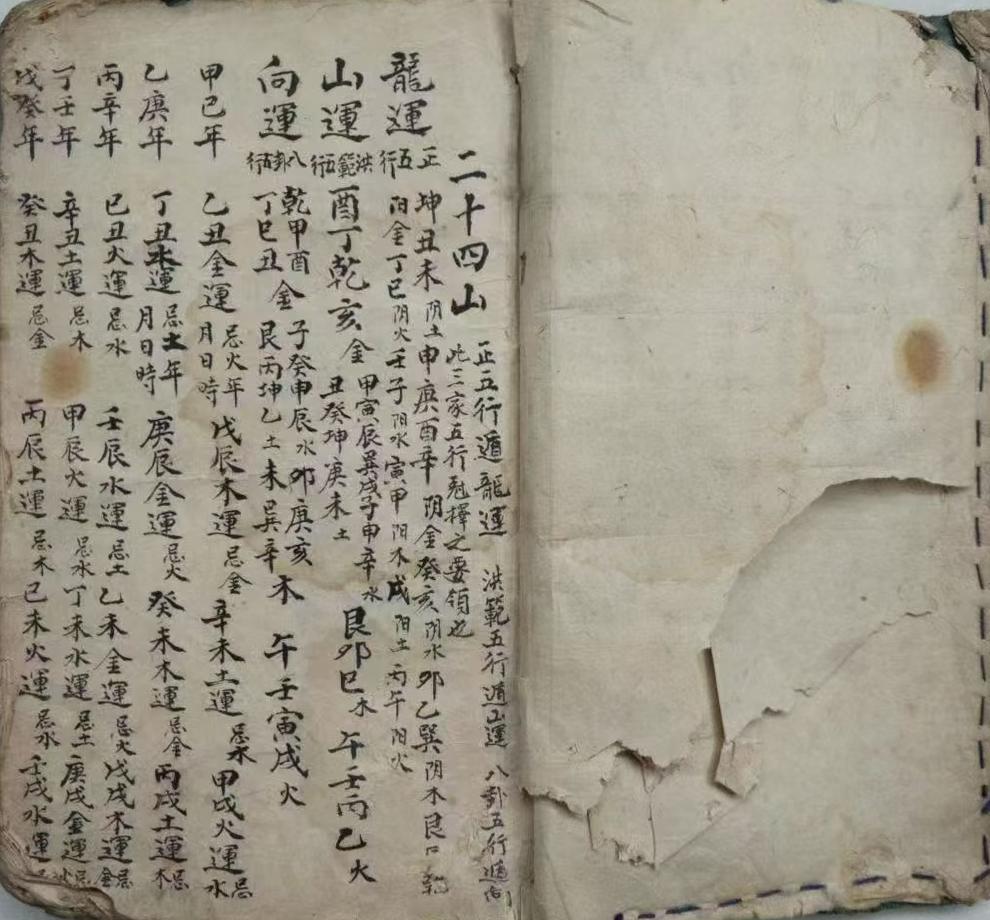 二十四山 正五行遁龍運 洪範五行遁山運 八卦五行遁向
此三家五行尅擇之要領也
龍運 正五行 坤丑未阴土 申庚酉辛 阴金 癸亥阴水 卯乙巽阴木 艮
阳金 丁巳阴火 壬子阳水 寅甲阳木 戌阳土 丙午阳火
山運 洪範五行 酉丁乾亥金 甲寅辰巽戌子申辛水 艮卯巳木 午壬丙乙火
丑癸坤庚未土
向運 八卦五行 乾甲酉丁巳丑金 子癸申辰水 卯庚亥未 木 午壬寅戌火
艮丙坤乙土 巽辛
甲己年 乙丑金運 忌火年月日時 戊辰木運忌金 辛未土運忌木 甲戌火運忌水
乙庚年 丁丑水運 忌土年月日時 庚辰金運忌火 癸未木運忌金 丙戌土運忌木
丙辛年 己丑火運忌水 壬辰水運忌土 乙未金運忌火 戊戌木運忌金
丁壬年 辛丑土運忌木 甲辰火運忌水 丁未水運忌土 庚戌金運忌火
戊癸年 癸丑木運忌金 丙辰土運忌木 己未火運忌水 壬戌水運忌